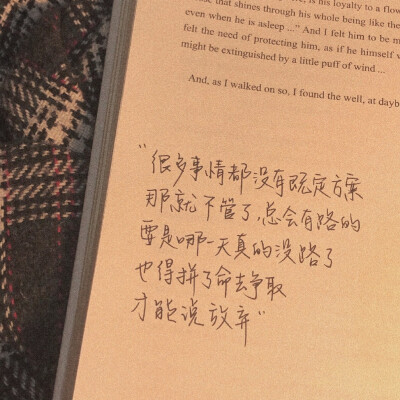 is his loyalty to a flow
that shines through his whole being like the
even when he is asleep ..." And I felt him to be m
felt the need of protecting him, as if he himself
might be extinguished by a little puff of wind ...
And, as I walked on so, I found the well, at dayb
“很多事情都没有既定方案
那就不管了,总会有路的
要是哪一天真的没路了
也得拼了命去争取
才能说放弃”